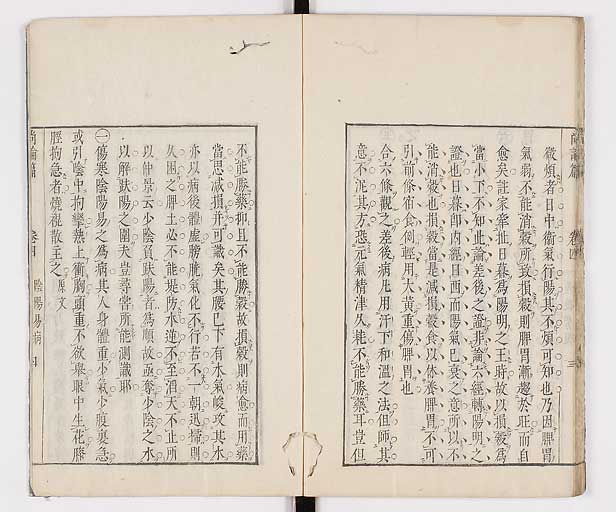 微煩者日中衛氣行陽其不煩可知也乃因脾胃
氣弱不能消穀所致損穀則脾胃漸趨於正而自
愈矣註家牽扯日暮為陽明之王時故以損穀為
當小下不知此論差後之證非論六經轉陽明之
證也日暮卽內經日西而陽氣已衰之意所以不
能消穀也損穀當是減損穀食以休養脾胃不可
引前條宿食例輕用大黃重傷脾胃也
合六條觀之差後病凡用汗下和溫之法但師其
意不泥其方恐元氣精津久耗不能勝藥耳豈但
不能勝藥抑且不能勝穀故損穀則病愈而用藥
當思減損并可識矣其腰已下有水氣峻攻其水
亦以病後體虛膀胱氣化不行若不一朝迅掃則
久困之脾土必不能堤防水逆不至滔天不止所
以仲景云少陰負趺陽者為順故亟奪少陰之水
以解趺陽之圍夫豈尋常所能測識耶
㊀傷寒陰陽易之為病其人身體重少氣少腹裏急
或引陰中拘攣熱上衝胸頭重不欲舉眼中生花膝
脛拘急者燒裩散主之 原文
尚論篇 卷四 陰陽易病 四
尚論篇 卷四 三